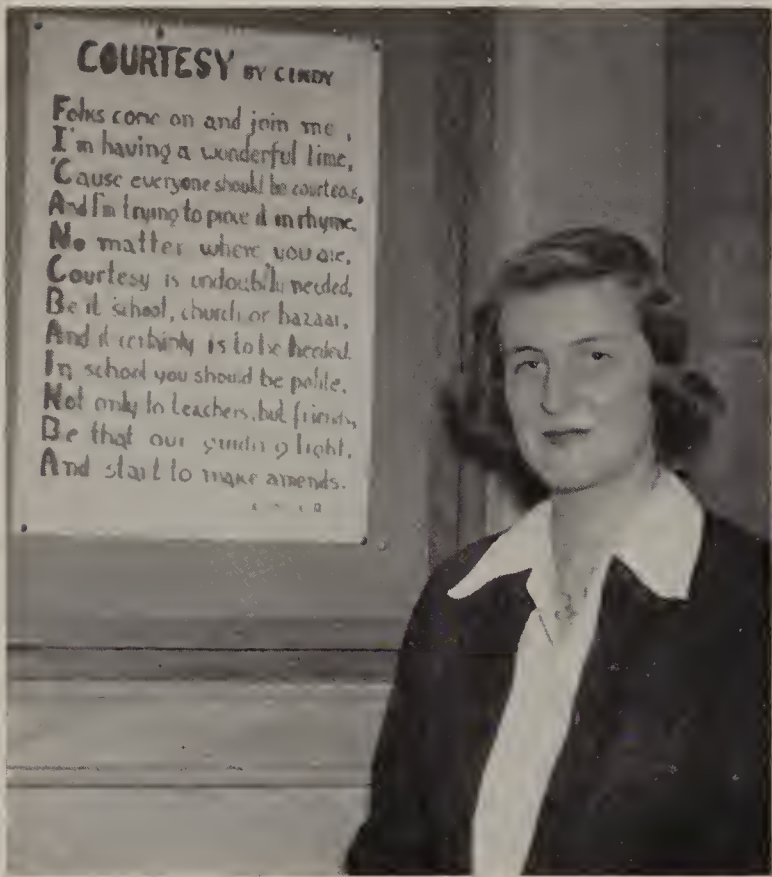 COURTESY BY CINDY
Folks come on and join me,
I'm having a wonderful time,
'Cause everyone should be courteous,
And I'm trying to prove it in rhyme.
No matter where you are,
Courtesy is undoubt'ly needed,
Be it school, church or bazaar,
And it certainly is to be heeded.
In school you should be polite,
Not only to teachers, but friends,
Be that our guiding light,
And start to make amends.